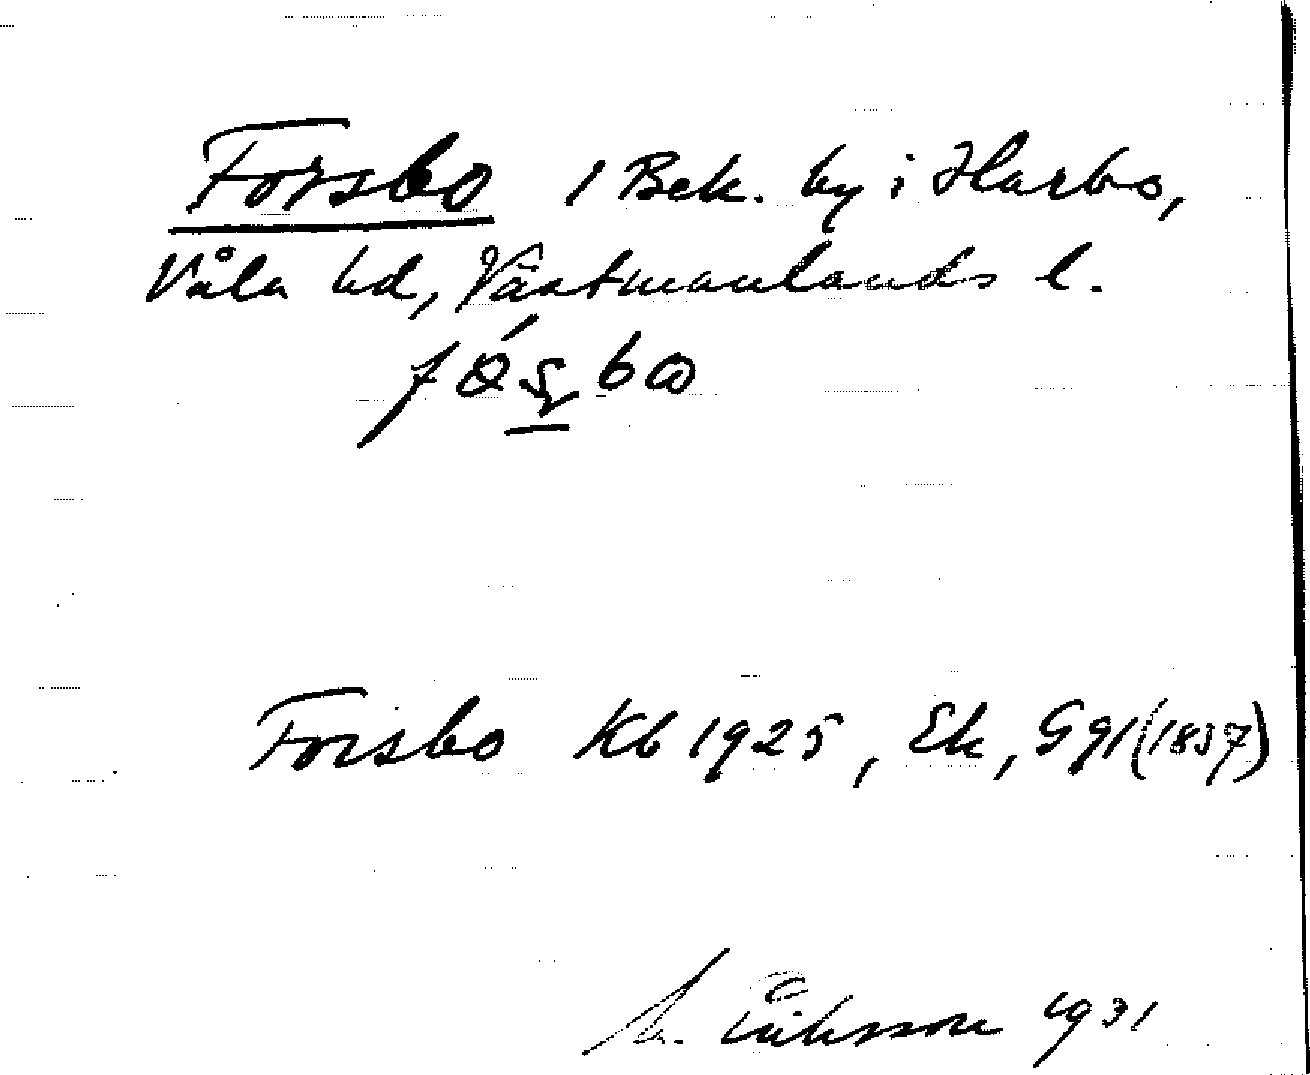 Forsbo 1 Bek. by i Harbo,
Våla hd, Västmanlands l.
Forsbo Kb 1925, Ek, Ggl (1857)
M. Eriksson 1931